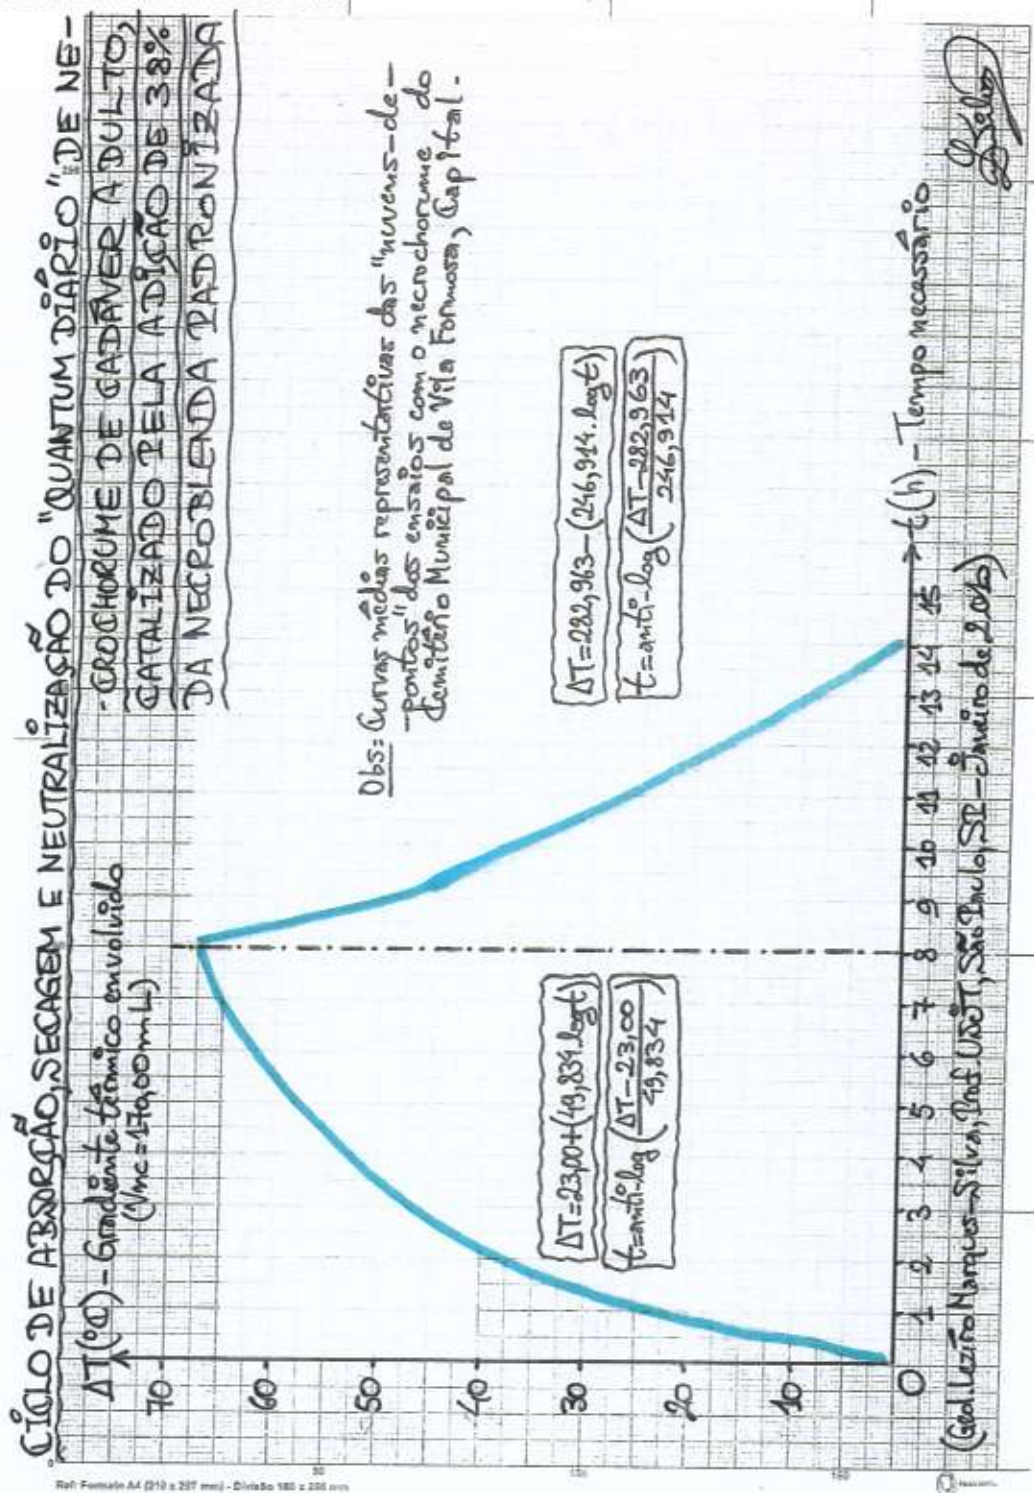 CICLO DE ABSORÇÃO, SECAGEM E NEUTRALIZAÇÃO DO "QUANTUM DIÁRIO" DE NE-
-CROCHORUME DE CADÁVER ADULTO,
CATALIZADO PELA ADIÇÃO DE 38%
DA NECROBLENDA PADRONIZADA
ΔT(°C) - Gradiente térmico envolvido
(Vmc=170,00mL)
Obs: Curvas médias representativas das "nuvens-de-
-pontos" dos ensaios com o necrochorume do
Cemitério Municipal de Vila Formosa, Capital.
70
60
50
40
30
20
10
0
ΔT=23,00+(49,834.logt)
t=anti-log(ΔT-23,00/49,834)
ΔT=282,963-(246,914.logt)
t=anti-log(ΔT-282,963/246,914)
1 2 3 4 5 6 7 8 9 10 11 12 13 14 15
t(h) - Tempo necessário
(Geól. Lezíro Marques-Silva, Prof. USJT, São Paulo, SP - Janeiro de
Ref: Formato A4 (210 x 297 mm) - Divisão 180 x